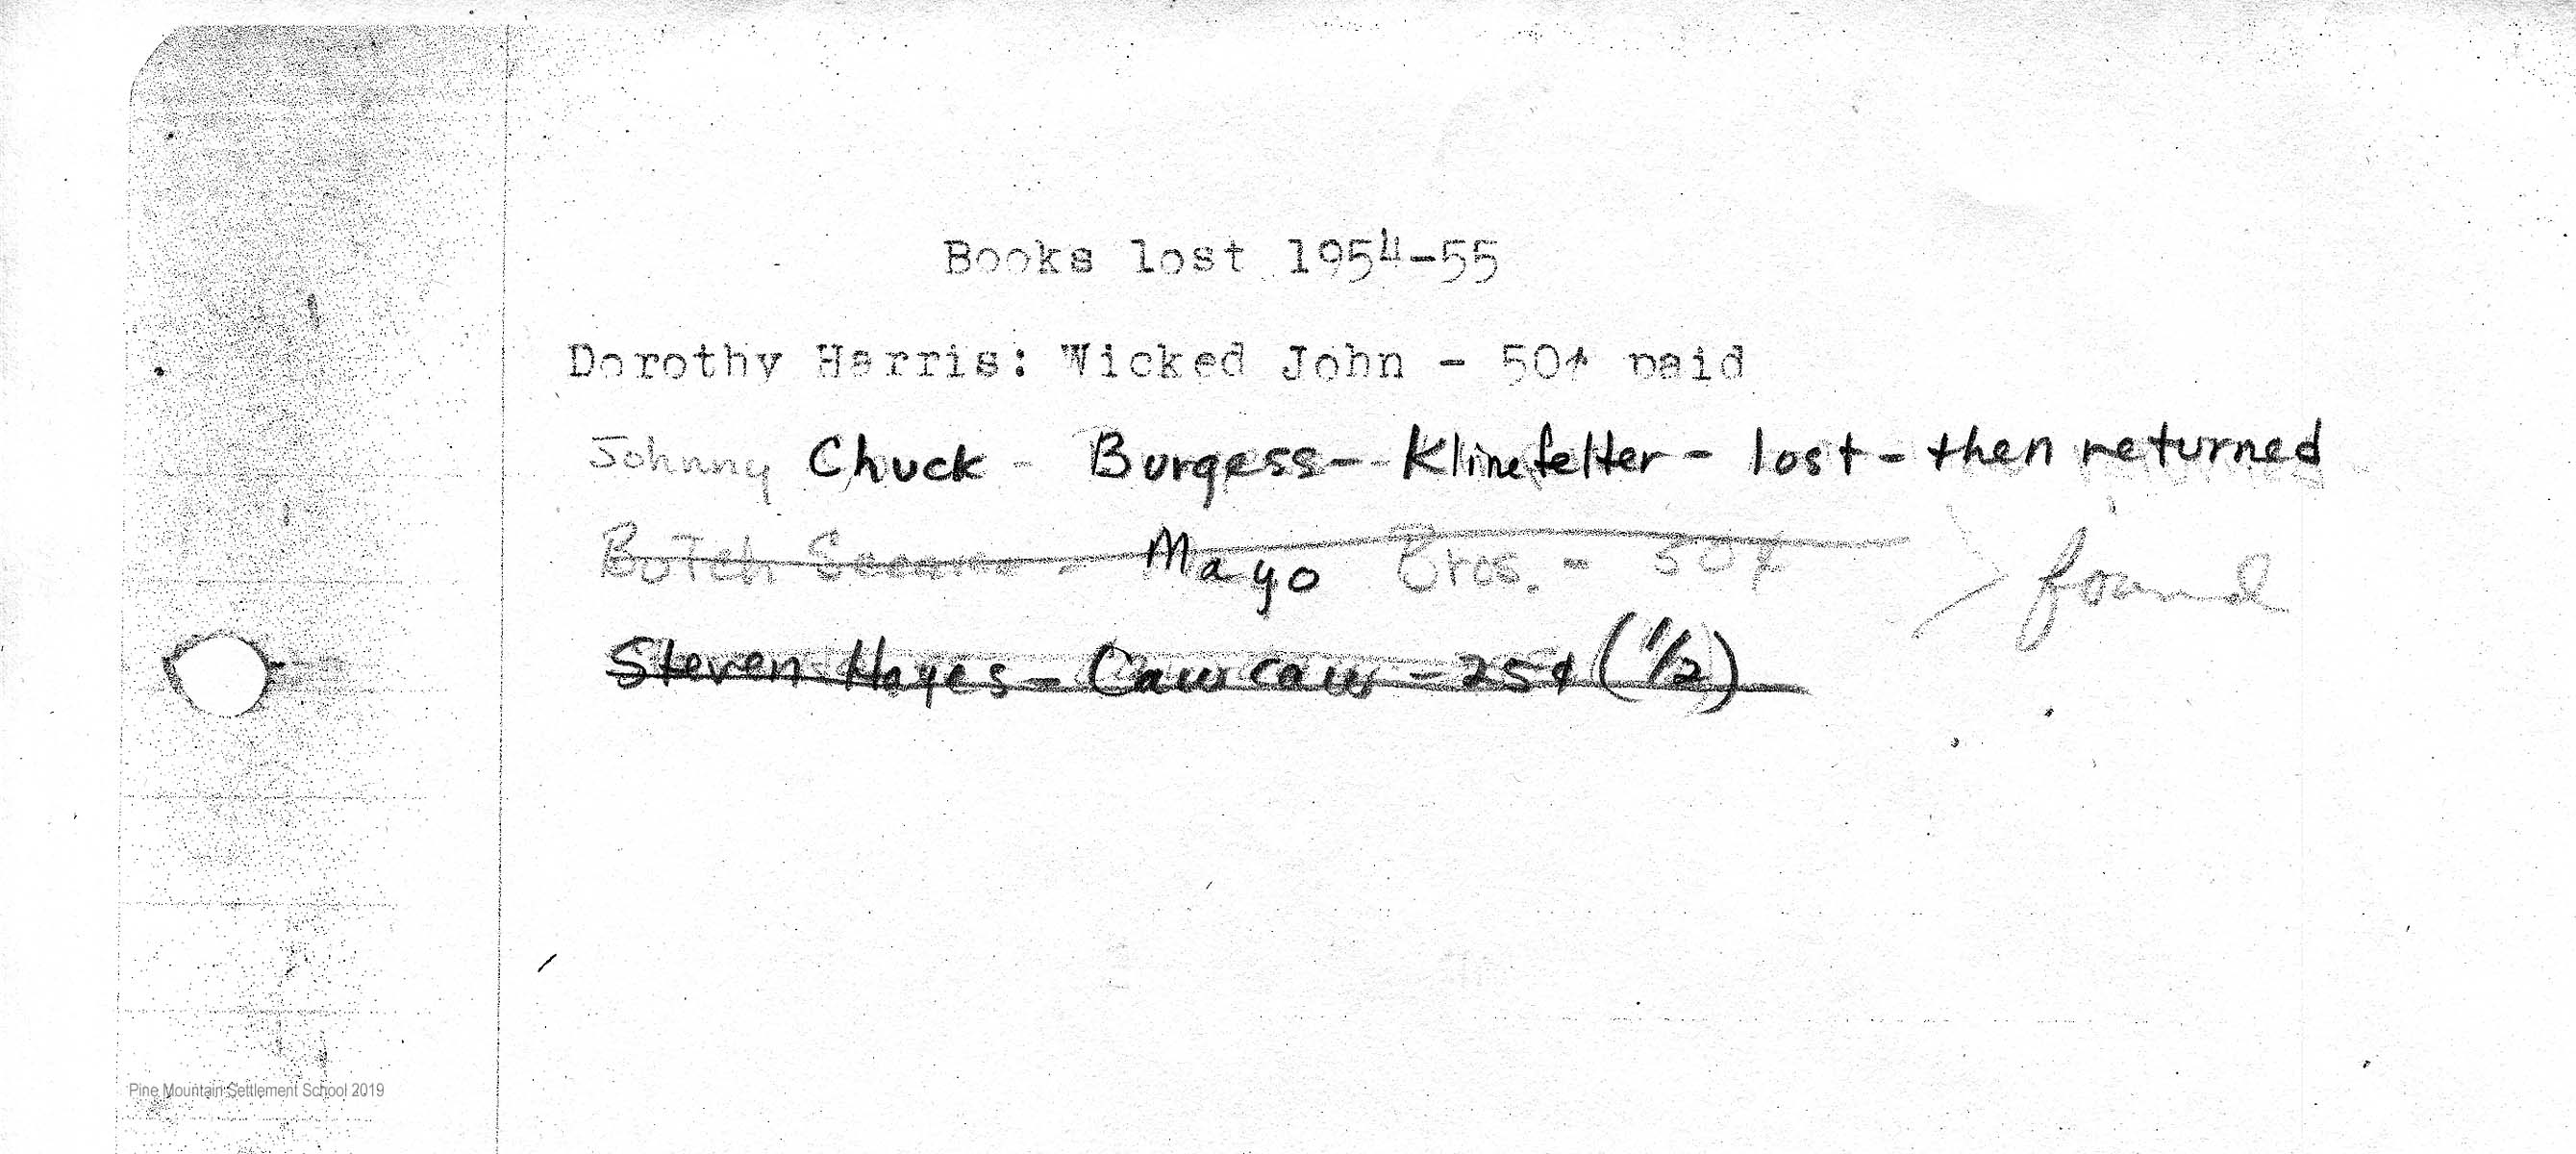 Books lost 1954-55
Dorothy Harris: Wicked John - 50¢ paid
Johnny Chuck - Burgess - Klinefelter - lost - then returned
Butch - Mayo Bros. - 50¢
found
Steven Hayes - Caw caw - 25¢ (1/2)
Pine Mountain Settlement School 2019